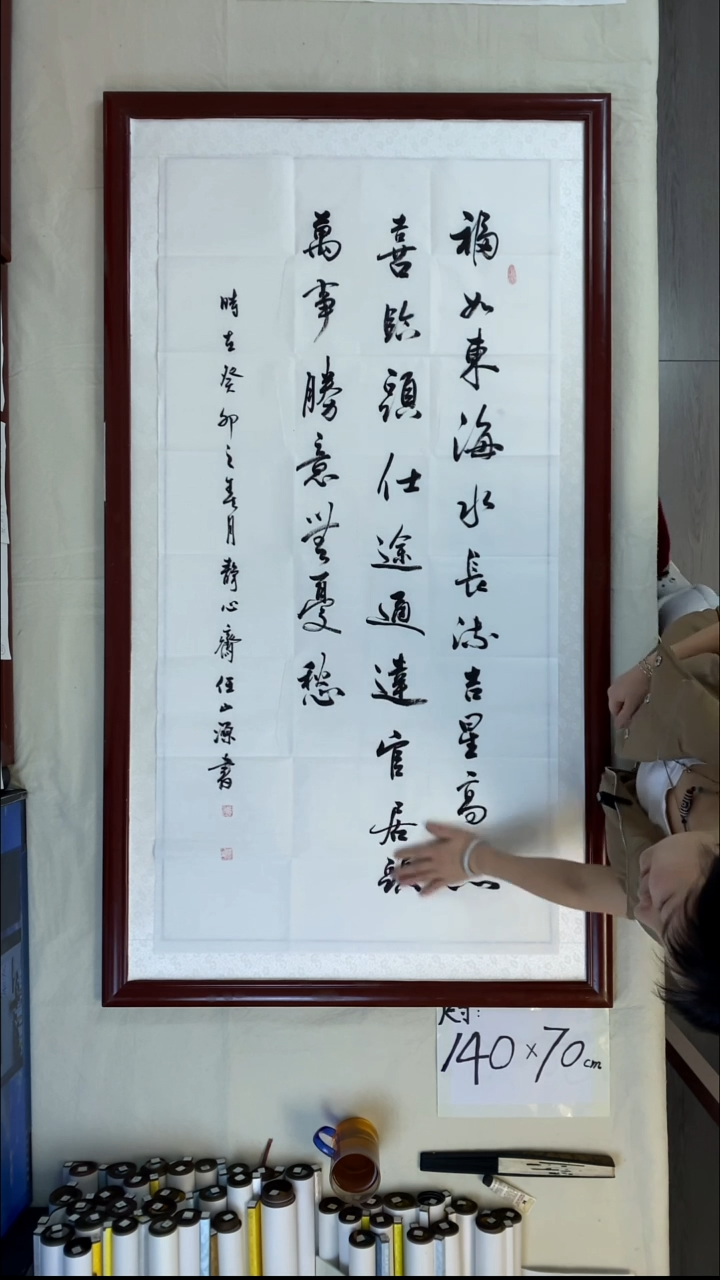 福如東海水長流吉星高
喜臨頭仕途通達官居頭
萬事勝意無憂愁
時在癸卯之春月靜心齋任山源書
尺寸:
140×70cm